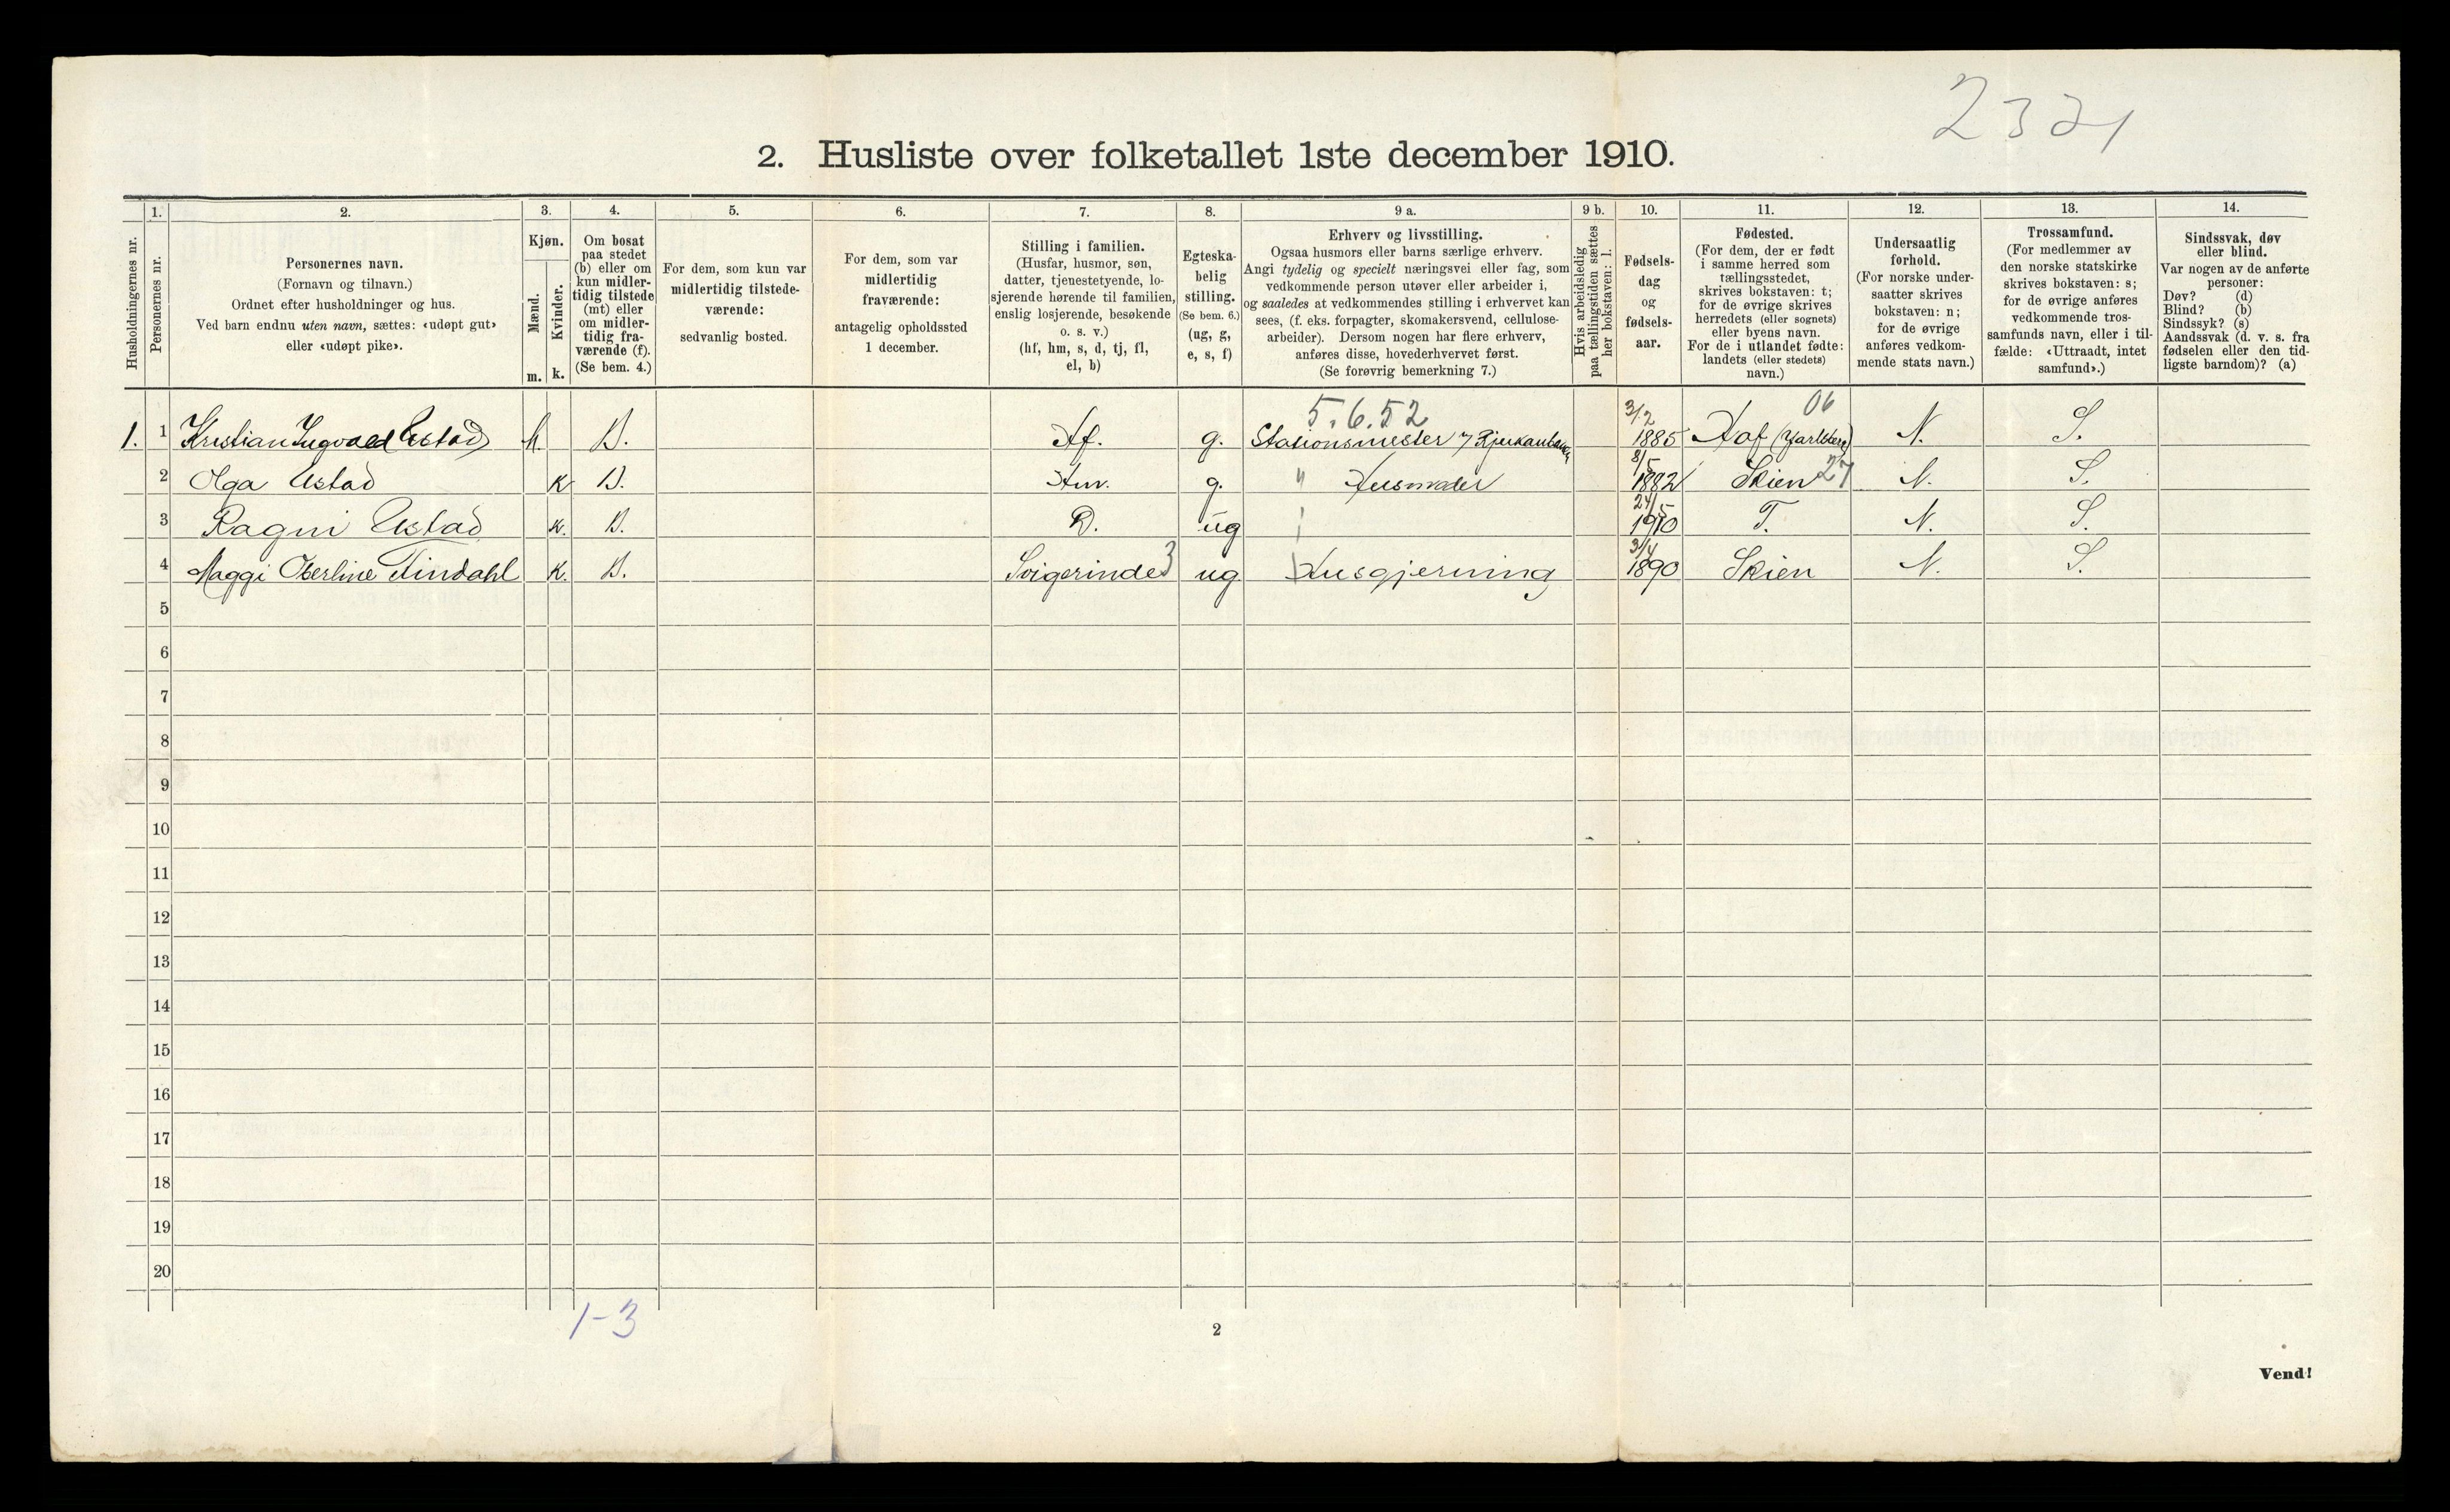 2321
2. Husliste over folketallet 1ste december 1910.
Husholdningernes nr.
1.
Personernes nr.
2.
Personernes navn.
(Fornavn og tilnavn.)
Ordnet efter husholdninger og hus.
Ved barn endnu uten navn, sættes: «udøpt gut»
eller «udøpt pike».
3.
Kjøn.
Mænd.
m.
Kvinder.
k.
4.
Om bosat
paa stedet
(b) eller om
kun midler-
tidig tilstede
(mt) eller
om midler-
tidig fra-
værende (f).
(Se bem. 4.)
5.
For dem, som kun var
midlertidig tilstede-
værende:
sedvanlig bosted.
6.
For dem, som var
midlertidig
fraværende:
antagelig opholdssted
1 december.
7.
Stilling i familien.
(Husfar, husmor, søn,
datter, tjenestetyende, lo-
sjerende hørende til familien,
enslig losjerende, besøkende
o. s. v.)
(hf, hm, s, d, tj, fl,
el, b)
8.
Egteska-
belig
stilling.
(Se bem. 6.)
(ug, g,
e, s, f)
9 a.
Erhverv og livsstilling.
Ogsaa husmors eller barns særlige erhverv.
Angi tydelig og specielt næringsvei eller fag, som
vedkommende person utøver eller arbeider i,
og saaledes at vedkommendes stilling i erhvervet kan
sees, (f. eks. forpagter, skomakersvend, cellulose-
arbeider). Dersom nogen har flere erhverv,
anføres disse, hovederhvervet først.
(Se forøvrig bemerkning 7.)
9 b.
Hvis arbeidsledig
paa tællingstiden sættes
her bokstaven: l.
10.
Fødsels-
dag
og
fødsels-
aar.
11.
Fødested.
(For dem, der er født
i samme herred som
tællingsstedet,
skrives bokstaven: t;
for de øvrige skrives
herredets (eller sognets)
eller byens navn.
For de i utlandet fødte:
landets (eller stedets)
navn.)
12.
Undersaatlig
forhold.
(For norske under-
saatter skrives
bokstaven: n;
for de øvrige
anføres vedkom-
mende stats navn.)
13.
Trossamfund.
(For medlemmer av
den norske statskirke
skrives bokstaven: s;
for de øvrige anføres
vedkommende tros-
samfunds navn, eller i til-
fælde: «Uttraadt, intet
samfund».)
14.
Sindssvak, døv
eller blind.
Var nogen av de anførte
personer:
Døv? (d)
Blind? (b)
Sindssyk? (s)
Aandssvak (d. v. s. fra
fødselen eller den tid-
ligste barndom)? (a)
5.6.52 3/2 06
1. 1 Kristian Ingvald Ustad M. B. Hf. g. Stationsmester v Rjukanbanen 1885 Hof (Jarlsberg) N. S.
8/5 27
2 Olga Ustad K B. Hm. g. " Husmoder 1882 Skien N. S.
24/5
3 Ragni Ustad K. B. D. ug 1910 T. N. S.
3/4
4 Maggi Oberline Tindahl K. B. Svigerinde 3 ug Husgjerning 1890 Skien N. S.
5
6
7
8
9
10
11
12
13
14
15
16
17
18
19
20
1-3
2
Vend!